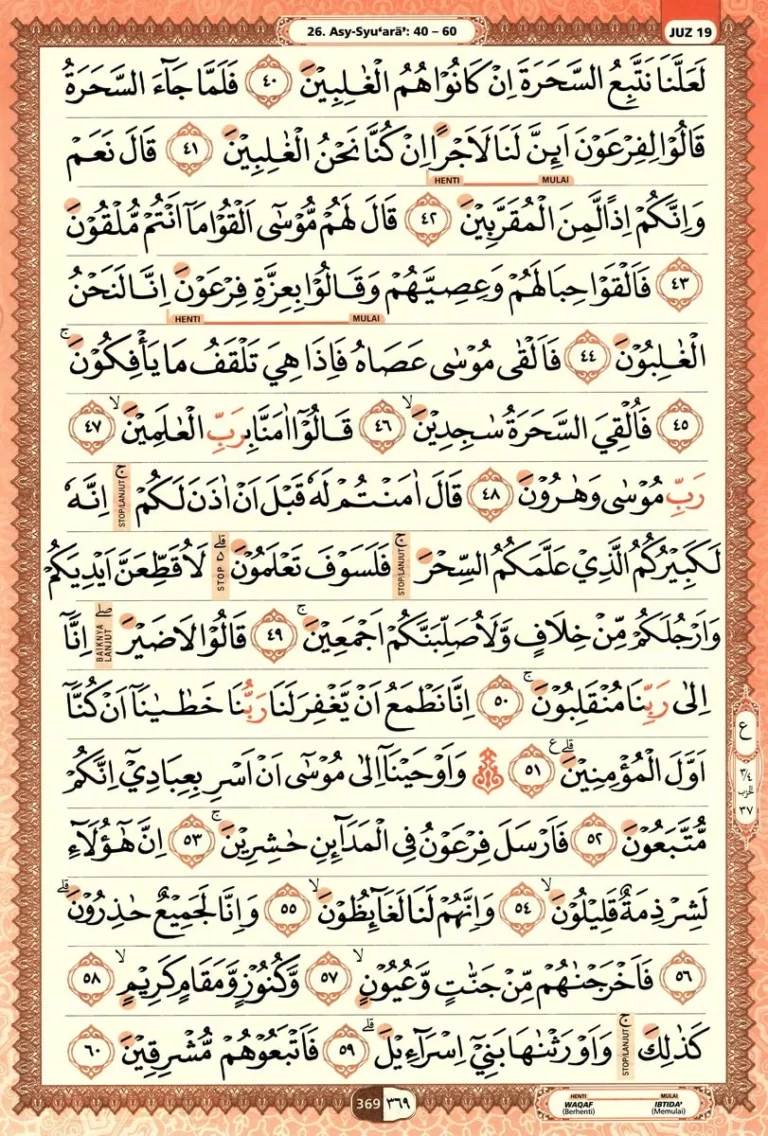 26. Asy-Syu‘arā’: 40 – 60
JUZ 19
لَعَلَّنَا نَتَّبِعُ السَّحَرَةَ اِنْ كَانُوْا هُمُ الْغٰلِبِيْنَ ٤٠ فَلَمَّا جَاۤءَ السَّحَرَةُ
قَالُوْا لِفِرْعَوْنَ اَىِٕنَّ لَنَا لَاَجْرًا اِنْ كُنَّا نَحْنُ الْغٰلِبِيْنَ ٤١ قَالَ نَعَمْ
HENTI MULAI
وَاِنَّكُمْ اِذًا لَّمِنَ الْمُقَرَّبِيْنَ ٤٢ قَالَ لَهُمْ مُّوْسٰٓى اَلْقُوْا مَآ اَنْتُمْ مُّلْقُوْنَ
٤٣ فَاَلْقَوْا حِبَالَهُمْ وَعِصِيَّهُمْ وَقَالُوْا بِعِزَّةِ فِرْعَوْنَ اِنَّا لَنَحْنُ
HENTI MULAI
الْغٰلِبُوْنَ ٤٤ فَاَلْقٰى مُوْسٰى عَصَاهُ فَاِذَا هِيَ تَلْقَفُ مَا يَأْفِكُوْنَ ۚ
٤٥ فَاُلْقِيَ السَّحَرَةُ سٰجِدِيْنَ ۙ ٤٦ قَالُوْٓا اٰمَنَّا بِرَبِّ الْعٰلَمِيْنَ ۙ ٤٧
رَبِّ مُوْسٰى وَهٰرُوْنَ ٤٨ قَالَ اٰمَنْتُمْ لَهٗ قَبْلَ اَنْ اٰذَنَ لَكُمْ ۚ STOP/LANJUT اِنَّهٗ
لَكَبِيْرُكُمُ الَّذِيْ عَلَّمَكُمُ السِّحْرَ ۚ STOP/LANJUT فَلَسَوْفَ تَعْلَمُوْنَ ۗ STOP لَاُقَطِّعَنَّ اَيْدِيَكُمْ
وَاَرْجُلَكُمْ مِّنْ خِلَافٍ وَّلَاُصَلِّبَنَّكُمْ اَجْمَعِيْنَ ۚ ٤٩ قَالُوْا لَا ضَيْرَ ۖ BAIKNYA LANJUT اِنَّآ
اِلٰى رَبِّنَا مُنْقَلِبُوْنَ ۚ ٥٠ اِنَّا نَطْمَعُ اَنْ يَّغْفِرَ لَنَا رَبُّنَا خَطٰيٰنَآ اَنْ كُنَّآ
اَوَّلَ الْمُؤْمِنِيْنَ ۗ ع ٥١ وَاَوْحَيْنَآ اِلٰى مُوْسٰٓى اَنْ اَسْرِ بِعِبَادِيْٓ اِنَّكُمْ
مُّتَّبَعُوْنَ ٥٢ فَاَرْسَلَ فِرْعَوْنُ فِى الْمَدَاۤىِٕنِ حٰشِرِيْنَ ۚ ٥٣ اِنَّ هٰٓؤُلَاۤءِ
لَشِرْذِمَةٌ قَلِيْلُوْنَ ۙ ٥٤ وَاِنَّهُمْ لَنَا لَغَاۤىِٕظُوْنَ ۙ ٥٥ وَاِنَّا لَجَمِيْعٌ حٰذِرُوْنَ ۗ
٥٦ فَاَخْرَجْنٰهُمْ مِّنْ جَنّٰتٍ وَّعُيُوْنٍ ۙ ٥٧ وَّكُنُوْزٍ وَّمَقَامٍ كَرِيْمٍ ۙ ٥٨
كَذٰلِكَ ۚ STOP/LANJUT وَاَوْرَثْنٰهَا بَنِيْٓ اِسْرَاۤءِيْلَ ۗ ٥٩ فَاَتْبَعُوْهُمْ مُّشْرِقِيْنَ ٦٠
ع
٣/٤
الحزب
٣٧
369 ٣٦٩
HENTI MULAI
WAQAF IBTIDA'
(Berhenti) (Memulai)